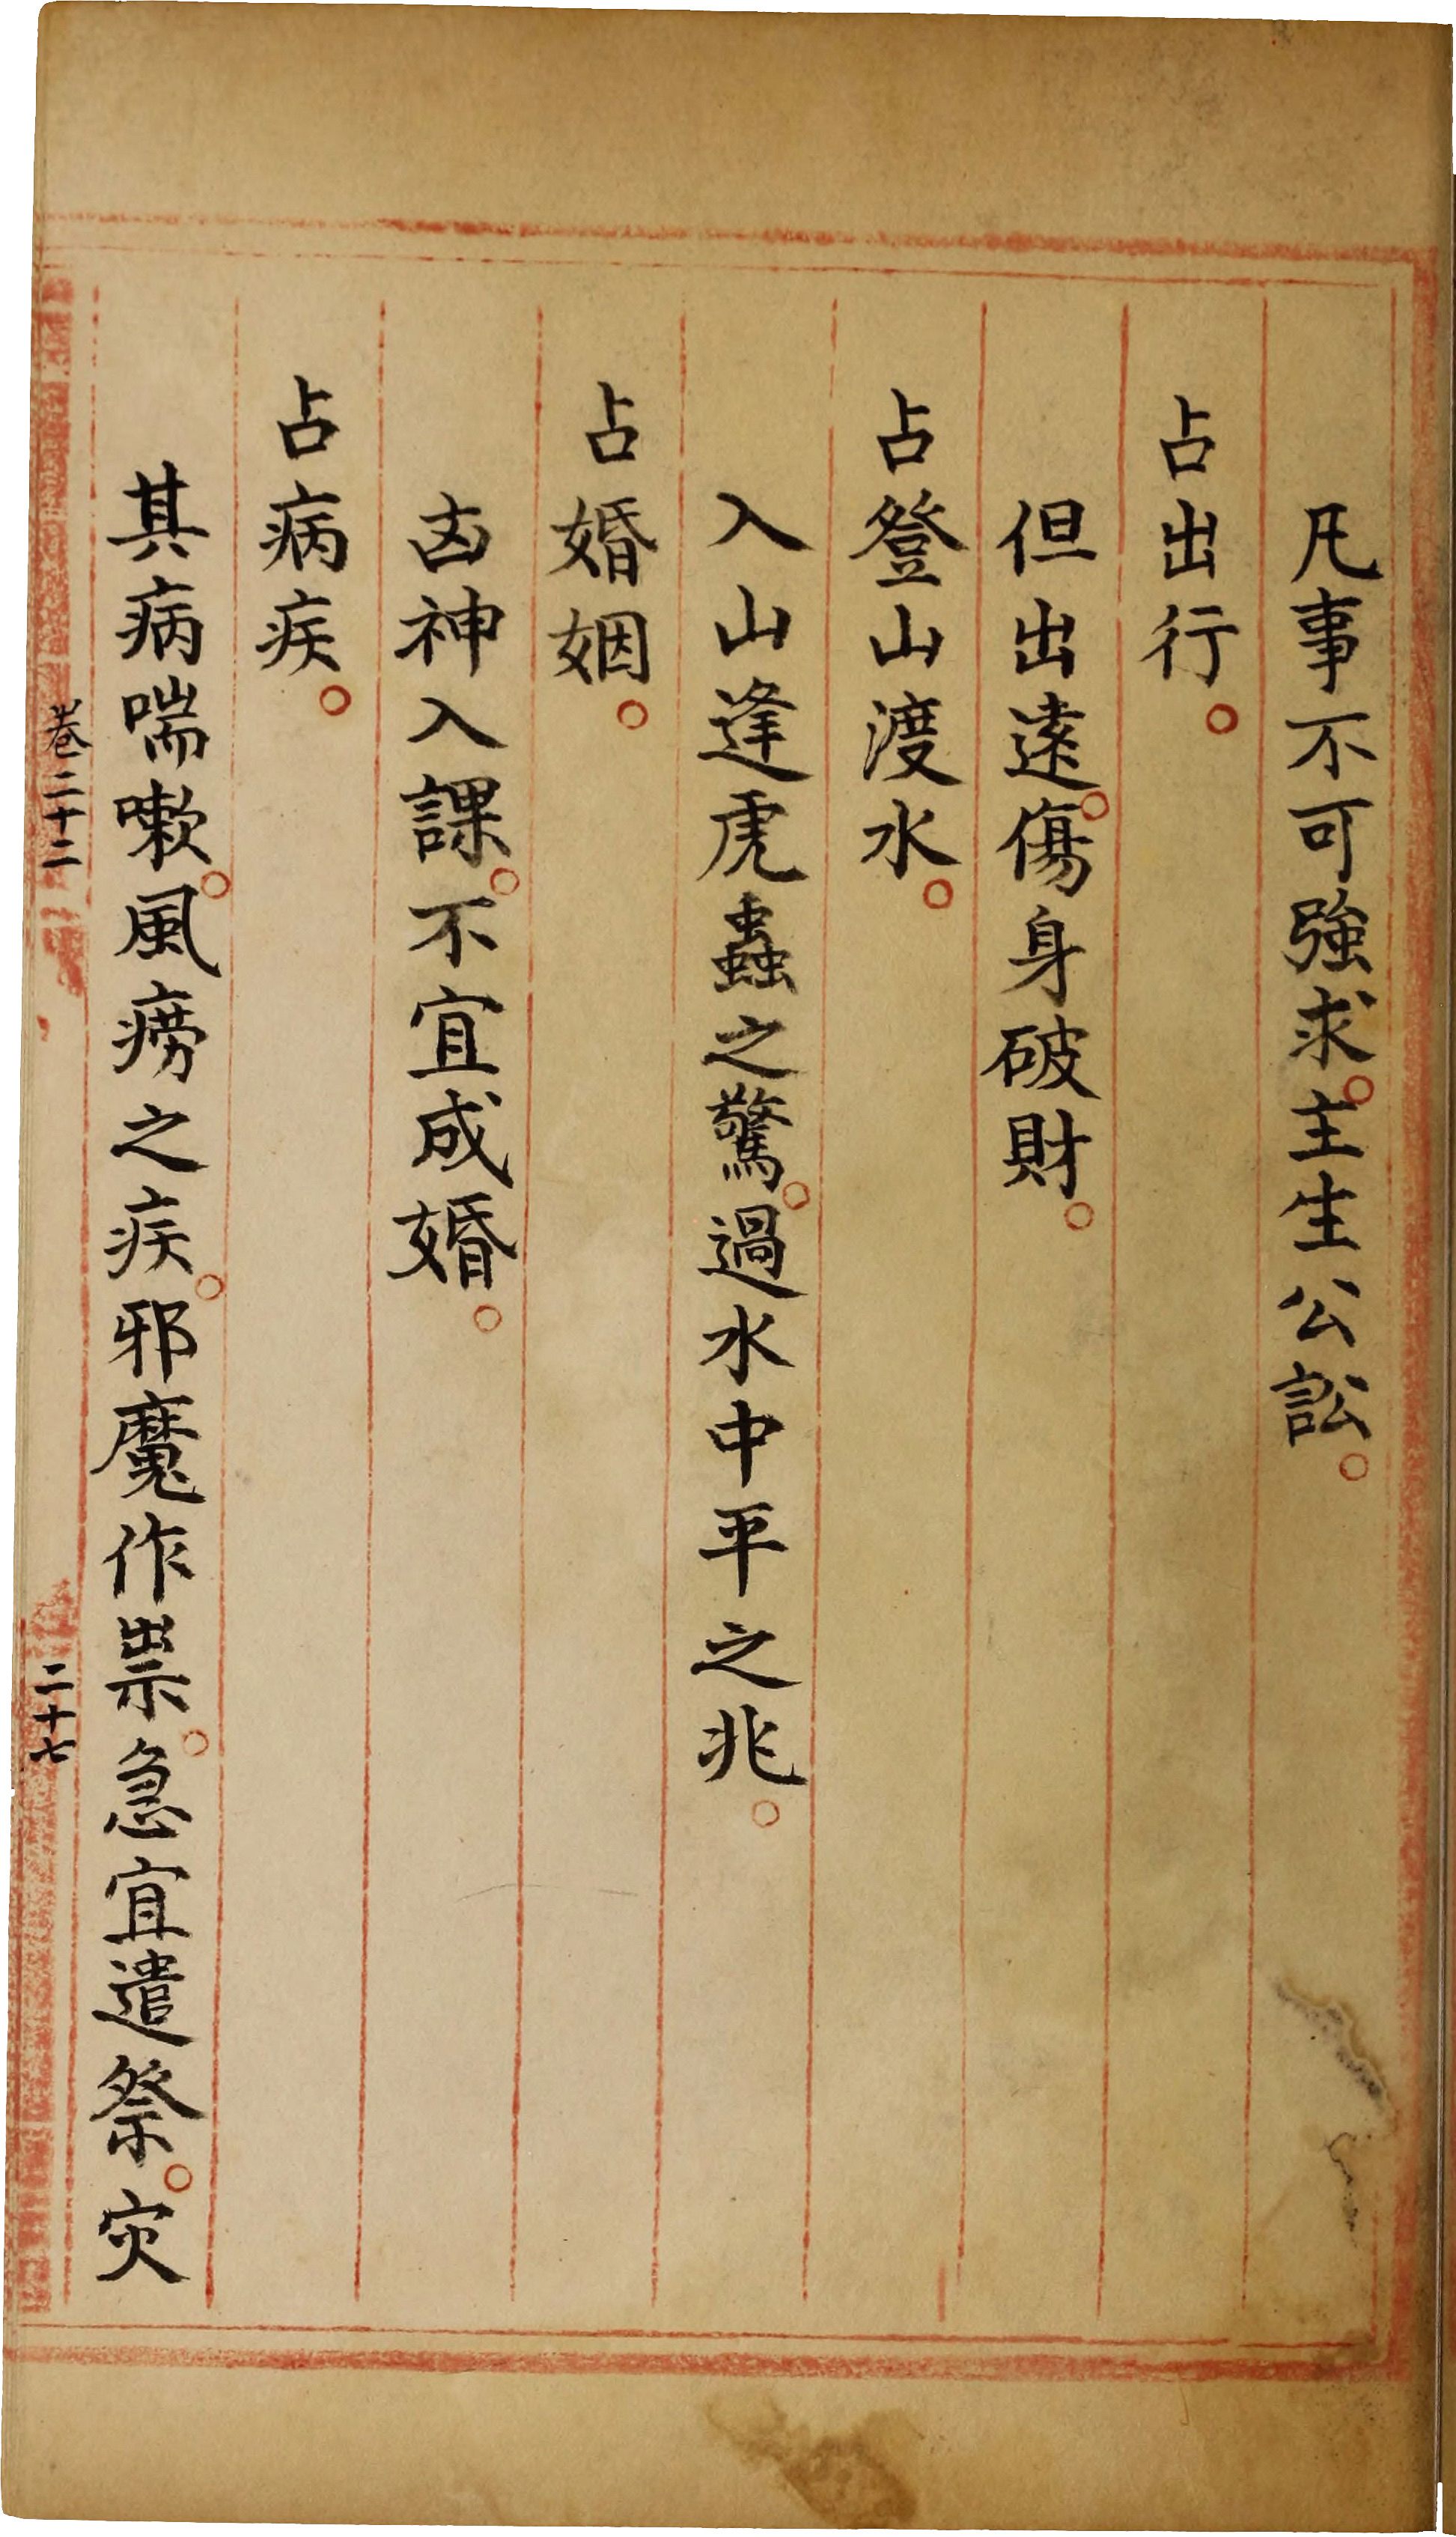 凡事不可強求。主生公訟。
占出行。
但出遠。傷身破財。
占登山渡水。
入山逢虎蟲之驚。過水中平之兆。
占婚姻。
凶神入課。不宜成婚。
占病疾。
其病喘嗽。風癆之疾。邪魔作祟。急宜遣祭。灾
卷二十二
二十七